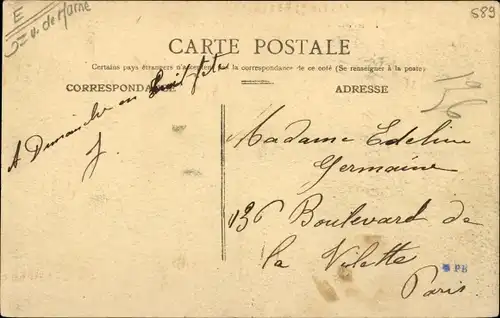 E
S=u. de Marne
589
CARTE POSTALE
Certains pays étrangers n'acceptent pas la correspondance de ce coté (Se renseigner à la poste)
CORRESPONDANCE
ADRESSE
A Dimanche en
J.
136
Madame Edeline
Germaine
136 Boulevard de
la Vilette
Paris
PB